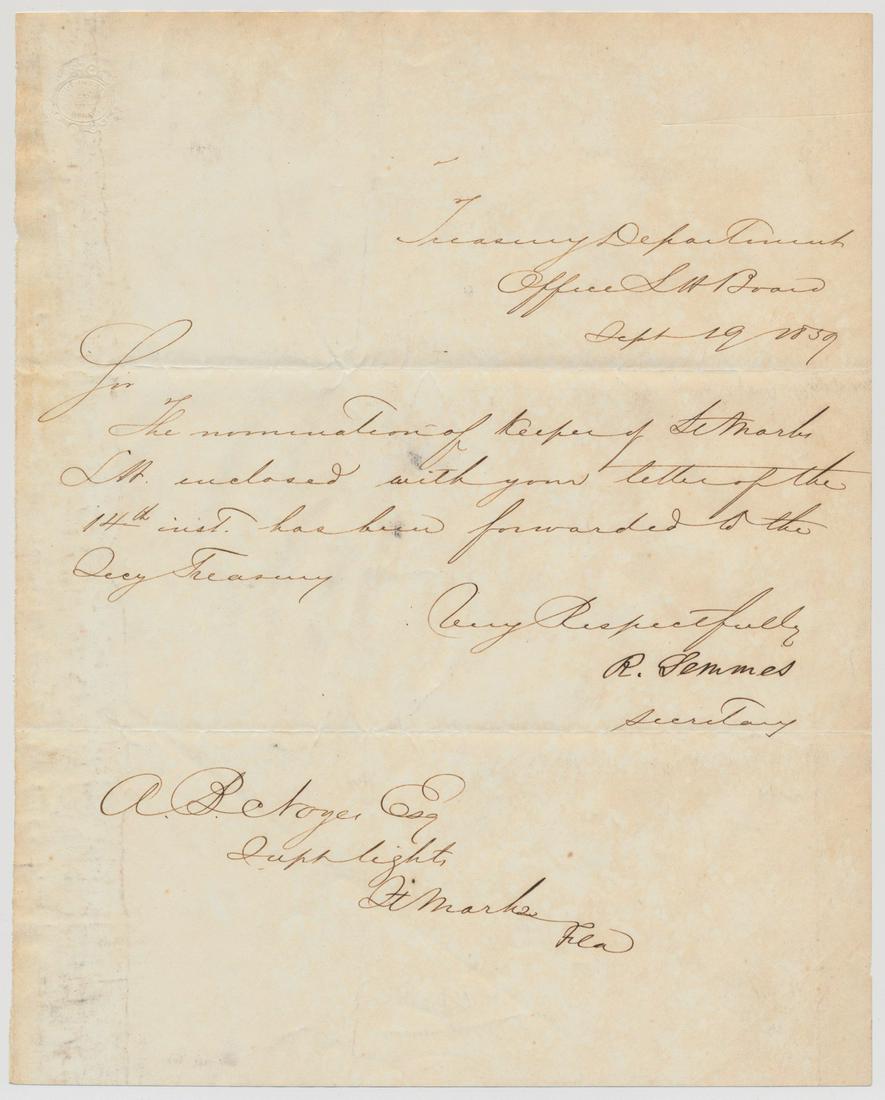 Treasury Department
Office L H Board
Sept 19 1859
Sir
The nomination of Keeper of St Marks
L H. enclosed with your letter of the
14th inst. has been forwarded to the
Secy Treasury
Very Respectfully
R. Semmes
Secretary
A. B. Noyes Esq
Supt lights
St Marks
Fla